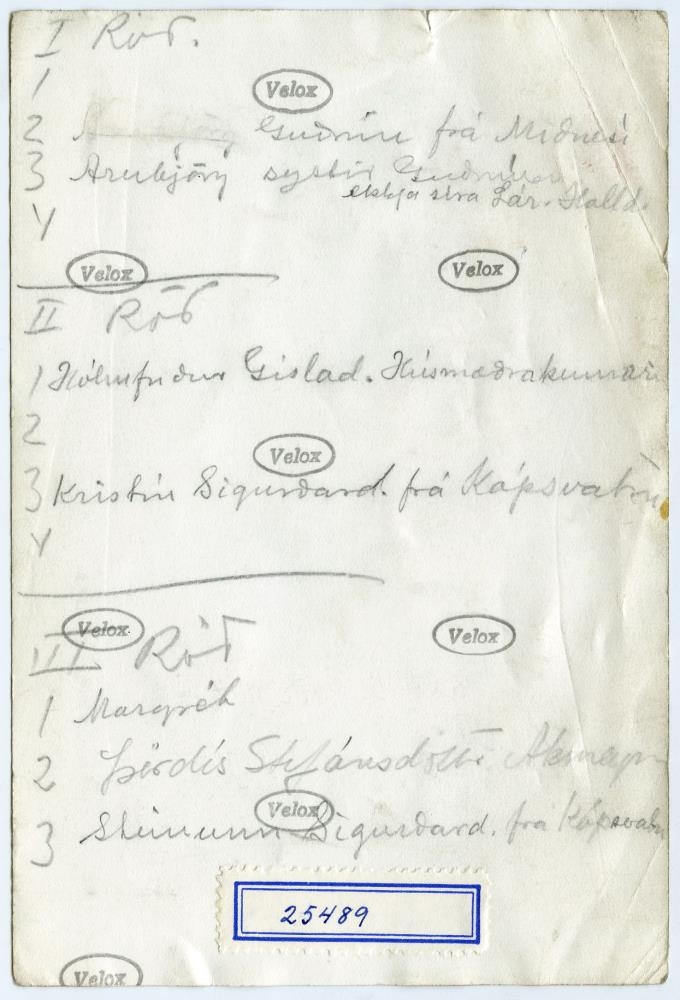 I Röð.
1
Velox
2 Guðrún frá Miðnesi
3 Arnbjörg systir Guðrúnar
ekkja séra Lár. Halld.
4
Velox
Velox
II Röð
1 Hólmfríður Gíslad. Húsmæðrakennari
2
Velox
3 Kristín Sigurðard. frá Kópsvatni
4
Velox
Velox
III Röð
1 Margrét
2 Þórdís Stefánsdóttir
Velox
3 Steinunn Sigurðard. frá Kópsvatni
25489
Velox